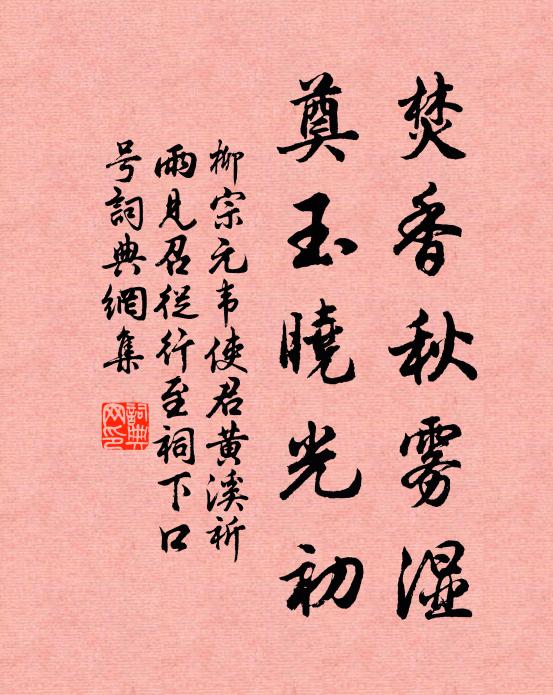 焚香秋雾湿
奠玉曉光初
柳宗元韦使君黄溪祈
雨見召從行至祠下口
号詞典網集
詞典网印